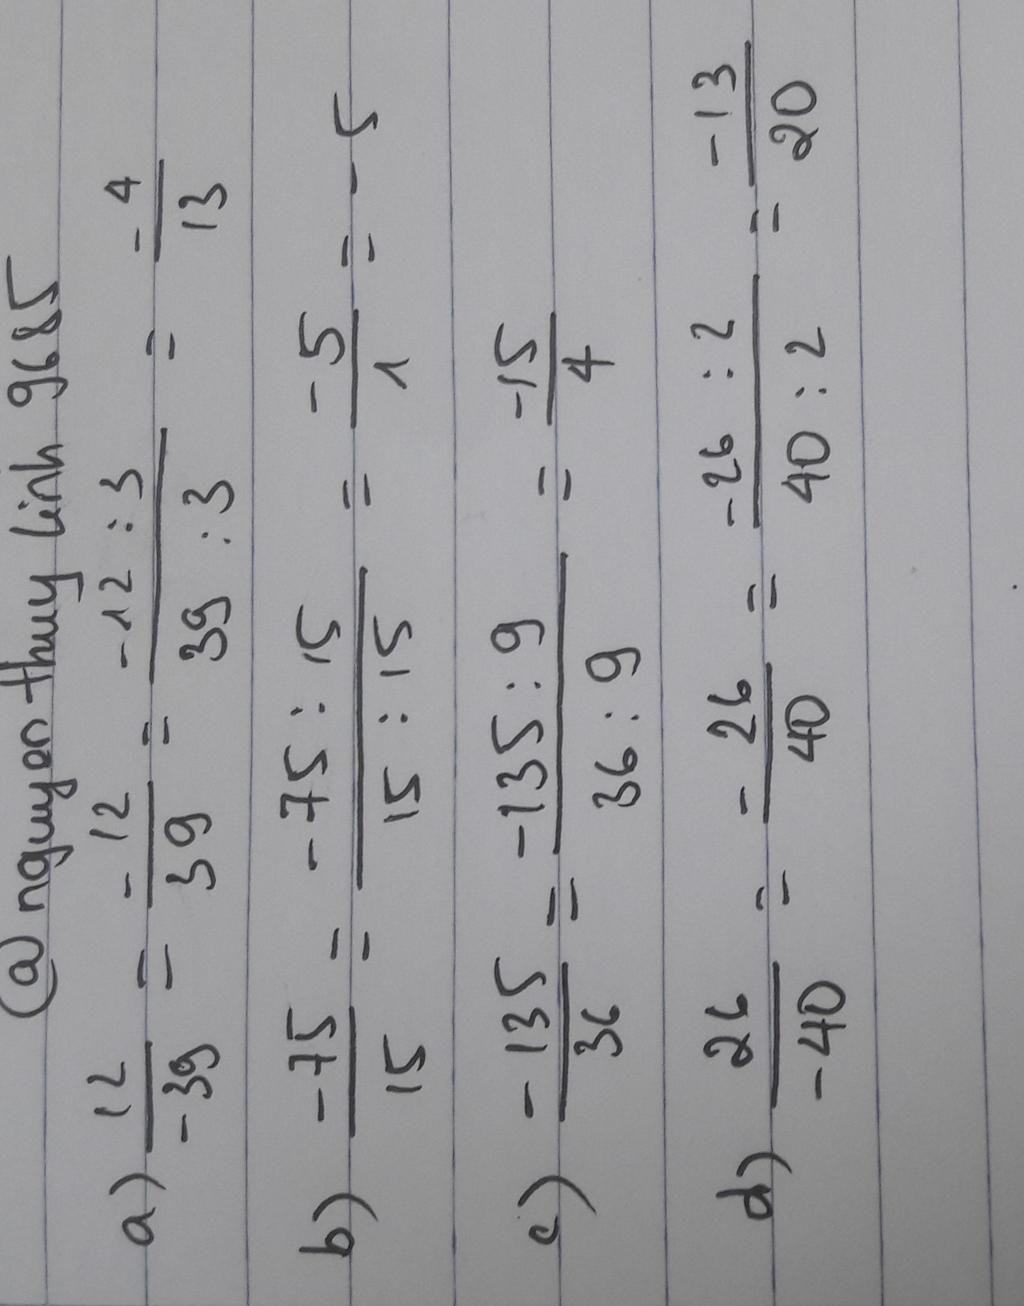 @ nguyen thuy linh 9685
a) 12/-39 = -12/39 = -12 : 3/39 : 3 = -4/13
b) -75/15 = -75 : 15/15 : 15 = -5/1 = -5
c) -135/36 = -135 : 9/36 : 9 = -15/4
d) 26/-40 = -26/40 = -26 : 2/40 : 2 = -13/20